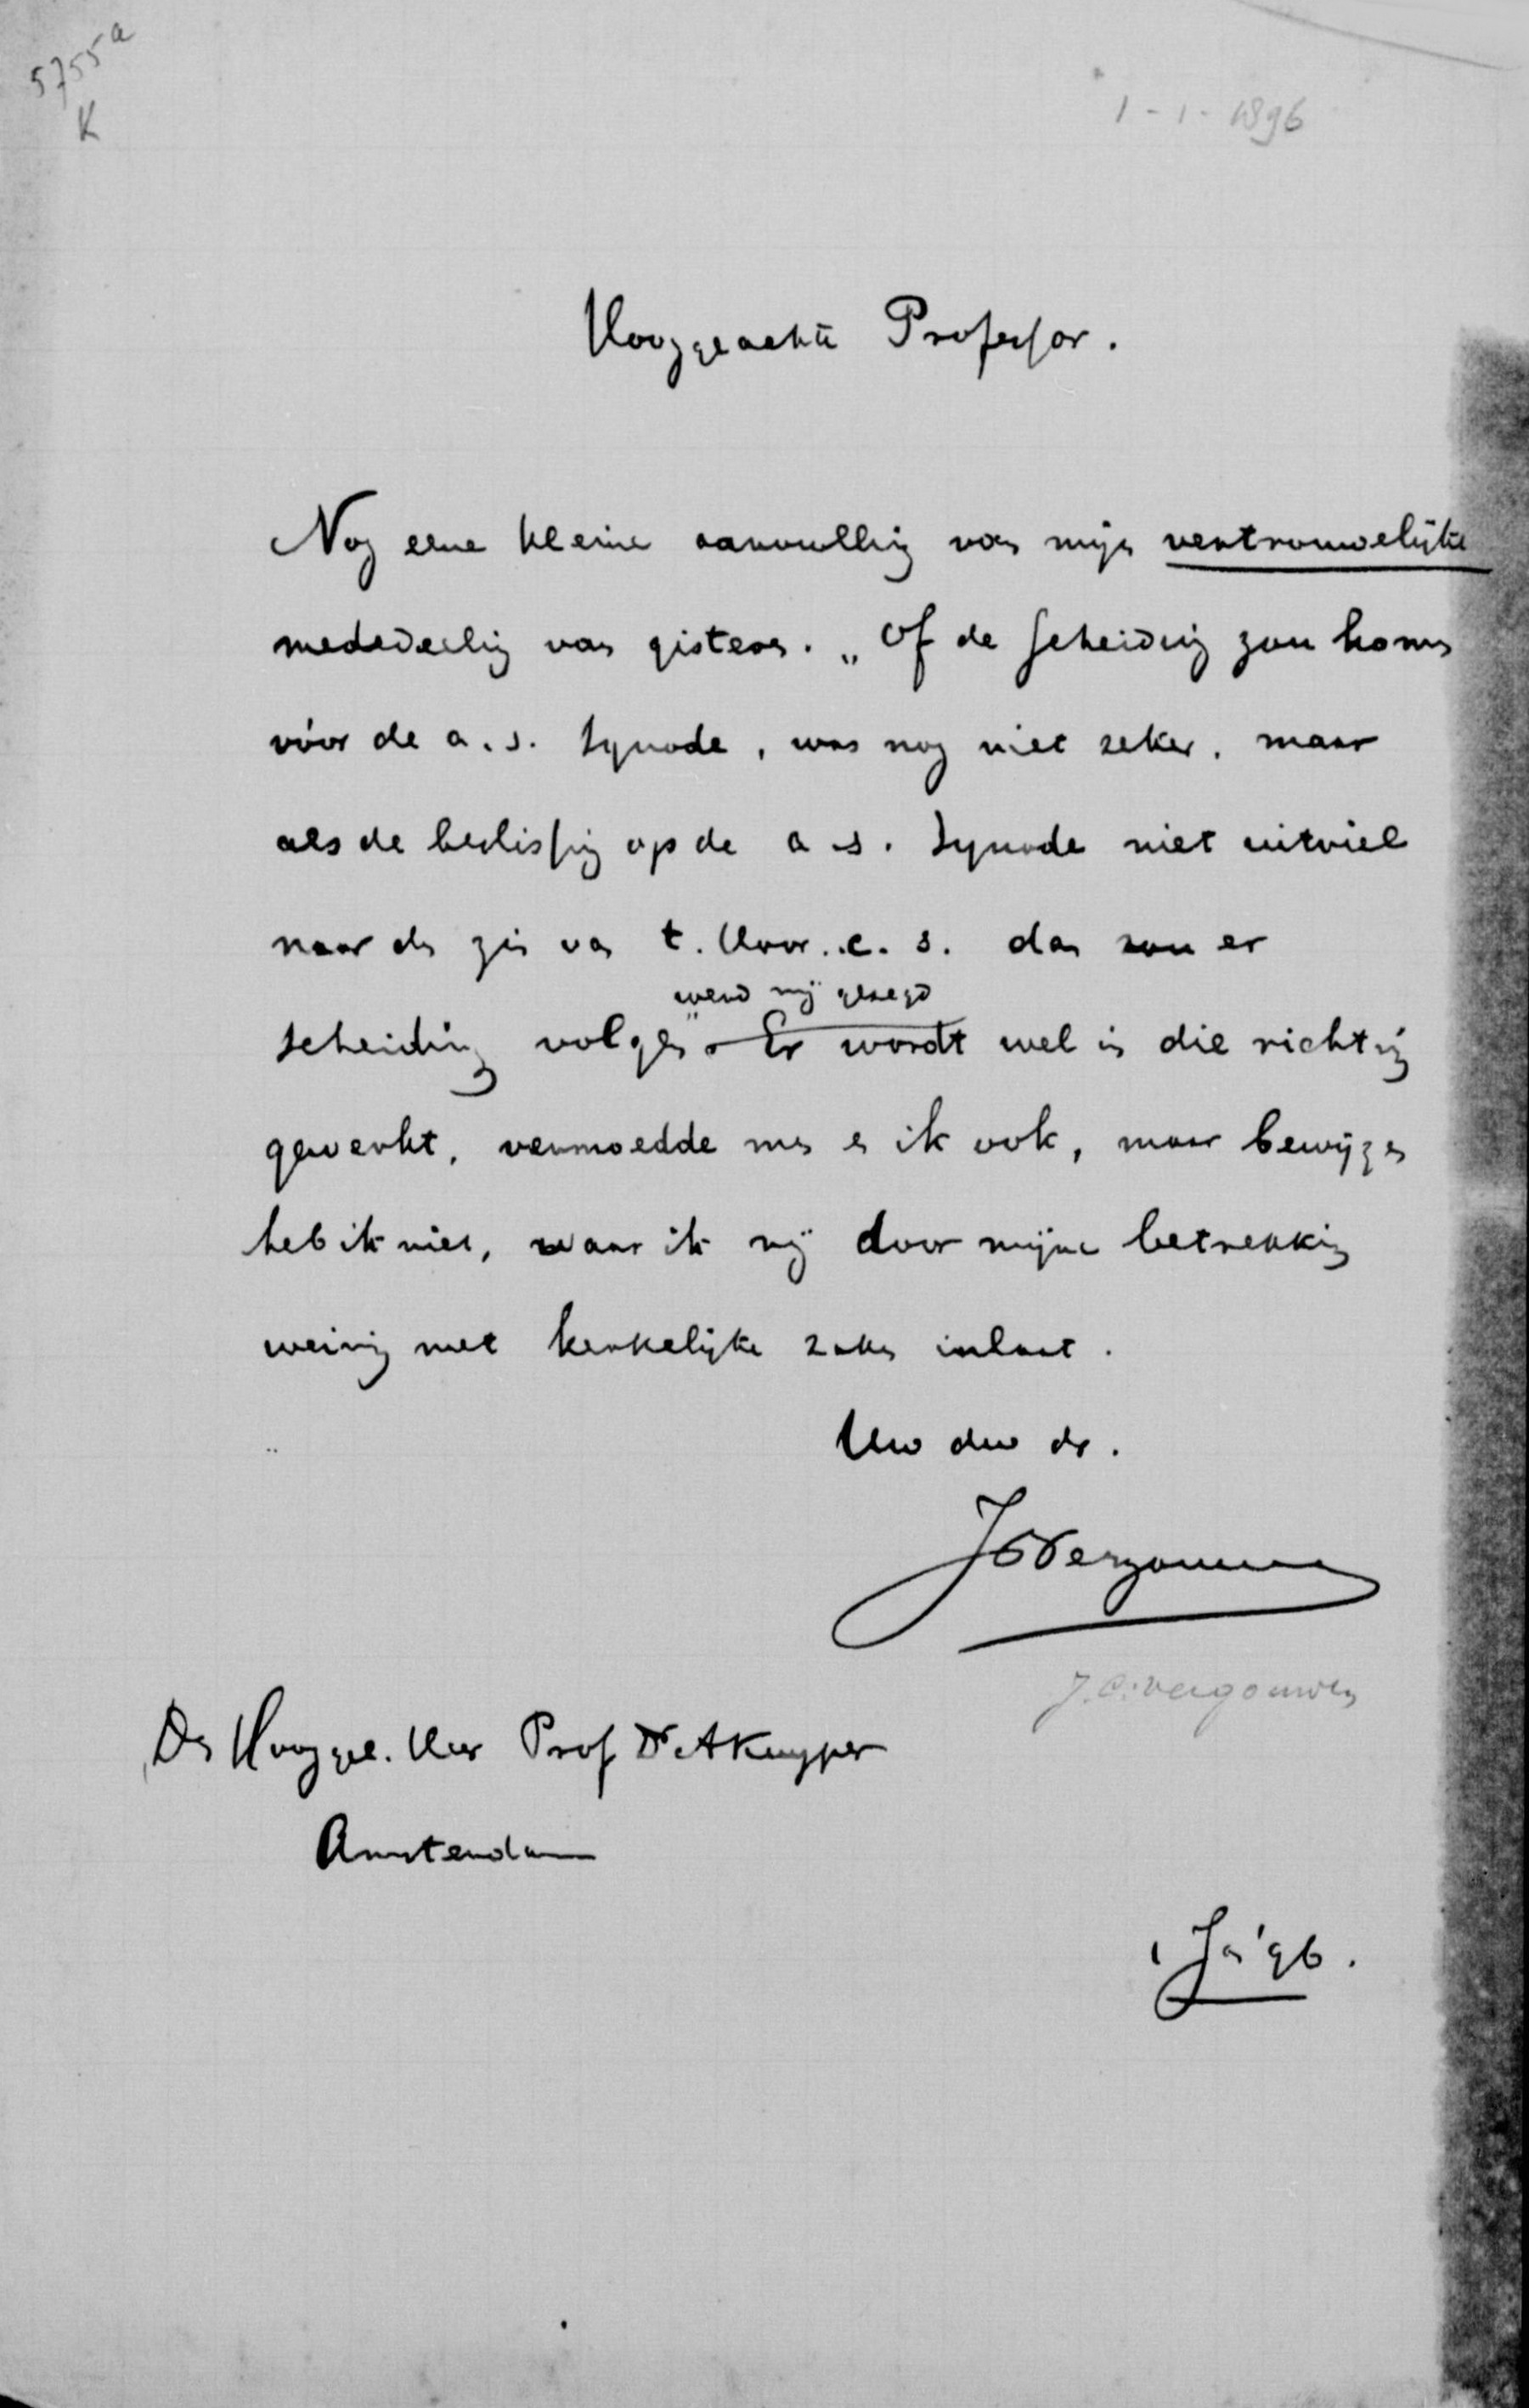 5755a
K
1-1-1896
Hooggeachte Professor.
Nog eene kleine aanvulling van mijn vertrouwelijke
mededeeling van gisteren. „Of de scheiding zou komen
vóór de a.s. Synode, was nog niet zeker, maar
als de beslissing op de a.s. Synode niet uitviel
naar den zin van t. Hoor. c.s. dan zou er
werd mij gezegd
scheiding volgen". Er wordt wel in die richting
gewerkt, vermoedde men en ik ook, maar bewijzen
heb ik niet, waar ik mij door mijne betrekking
weinig met kerkelijke zaken inlaat.
Uw dw dr.
JCVergouwen
J.C. Vergouwen
Den Hooggel. Heer Prof Dr A Kuyper
Amsterdam
1 Jan '96.